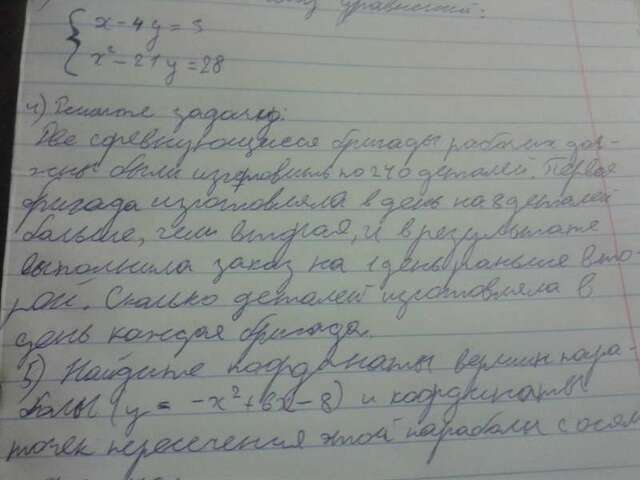 уравнений:
x - 4y = 5
x² - 21y = 28
4) Решите задачу:
Две соревнующиеся бригады рабочих дол-
жны были изготовить по 240 деталей. Первая
бригада изготовляла в день на 8 деталей
больше, чем вторая, и в результате
выполнила заказ на 1 день раньше вто-
рой. Сколько деталей изготовляла в
день каждая бригада.
5) Найдите координаты вершин пара-
болы (y = -x² + 6x - 8) и координаты
точек пересечения этой параболы с осям